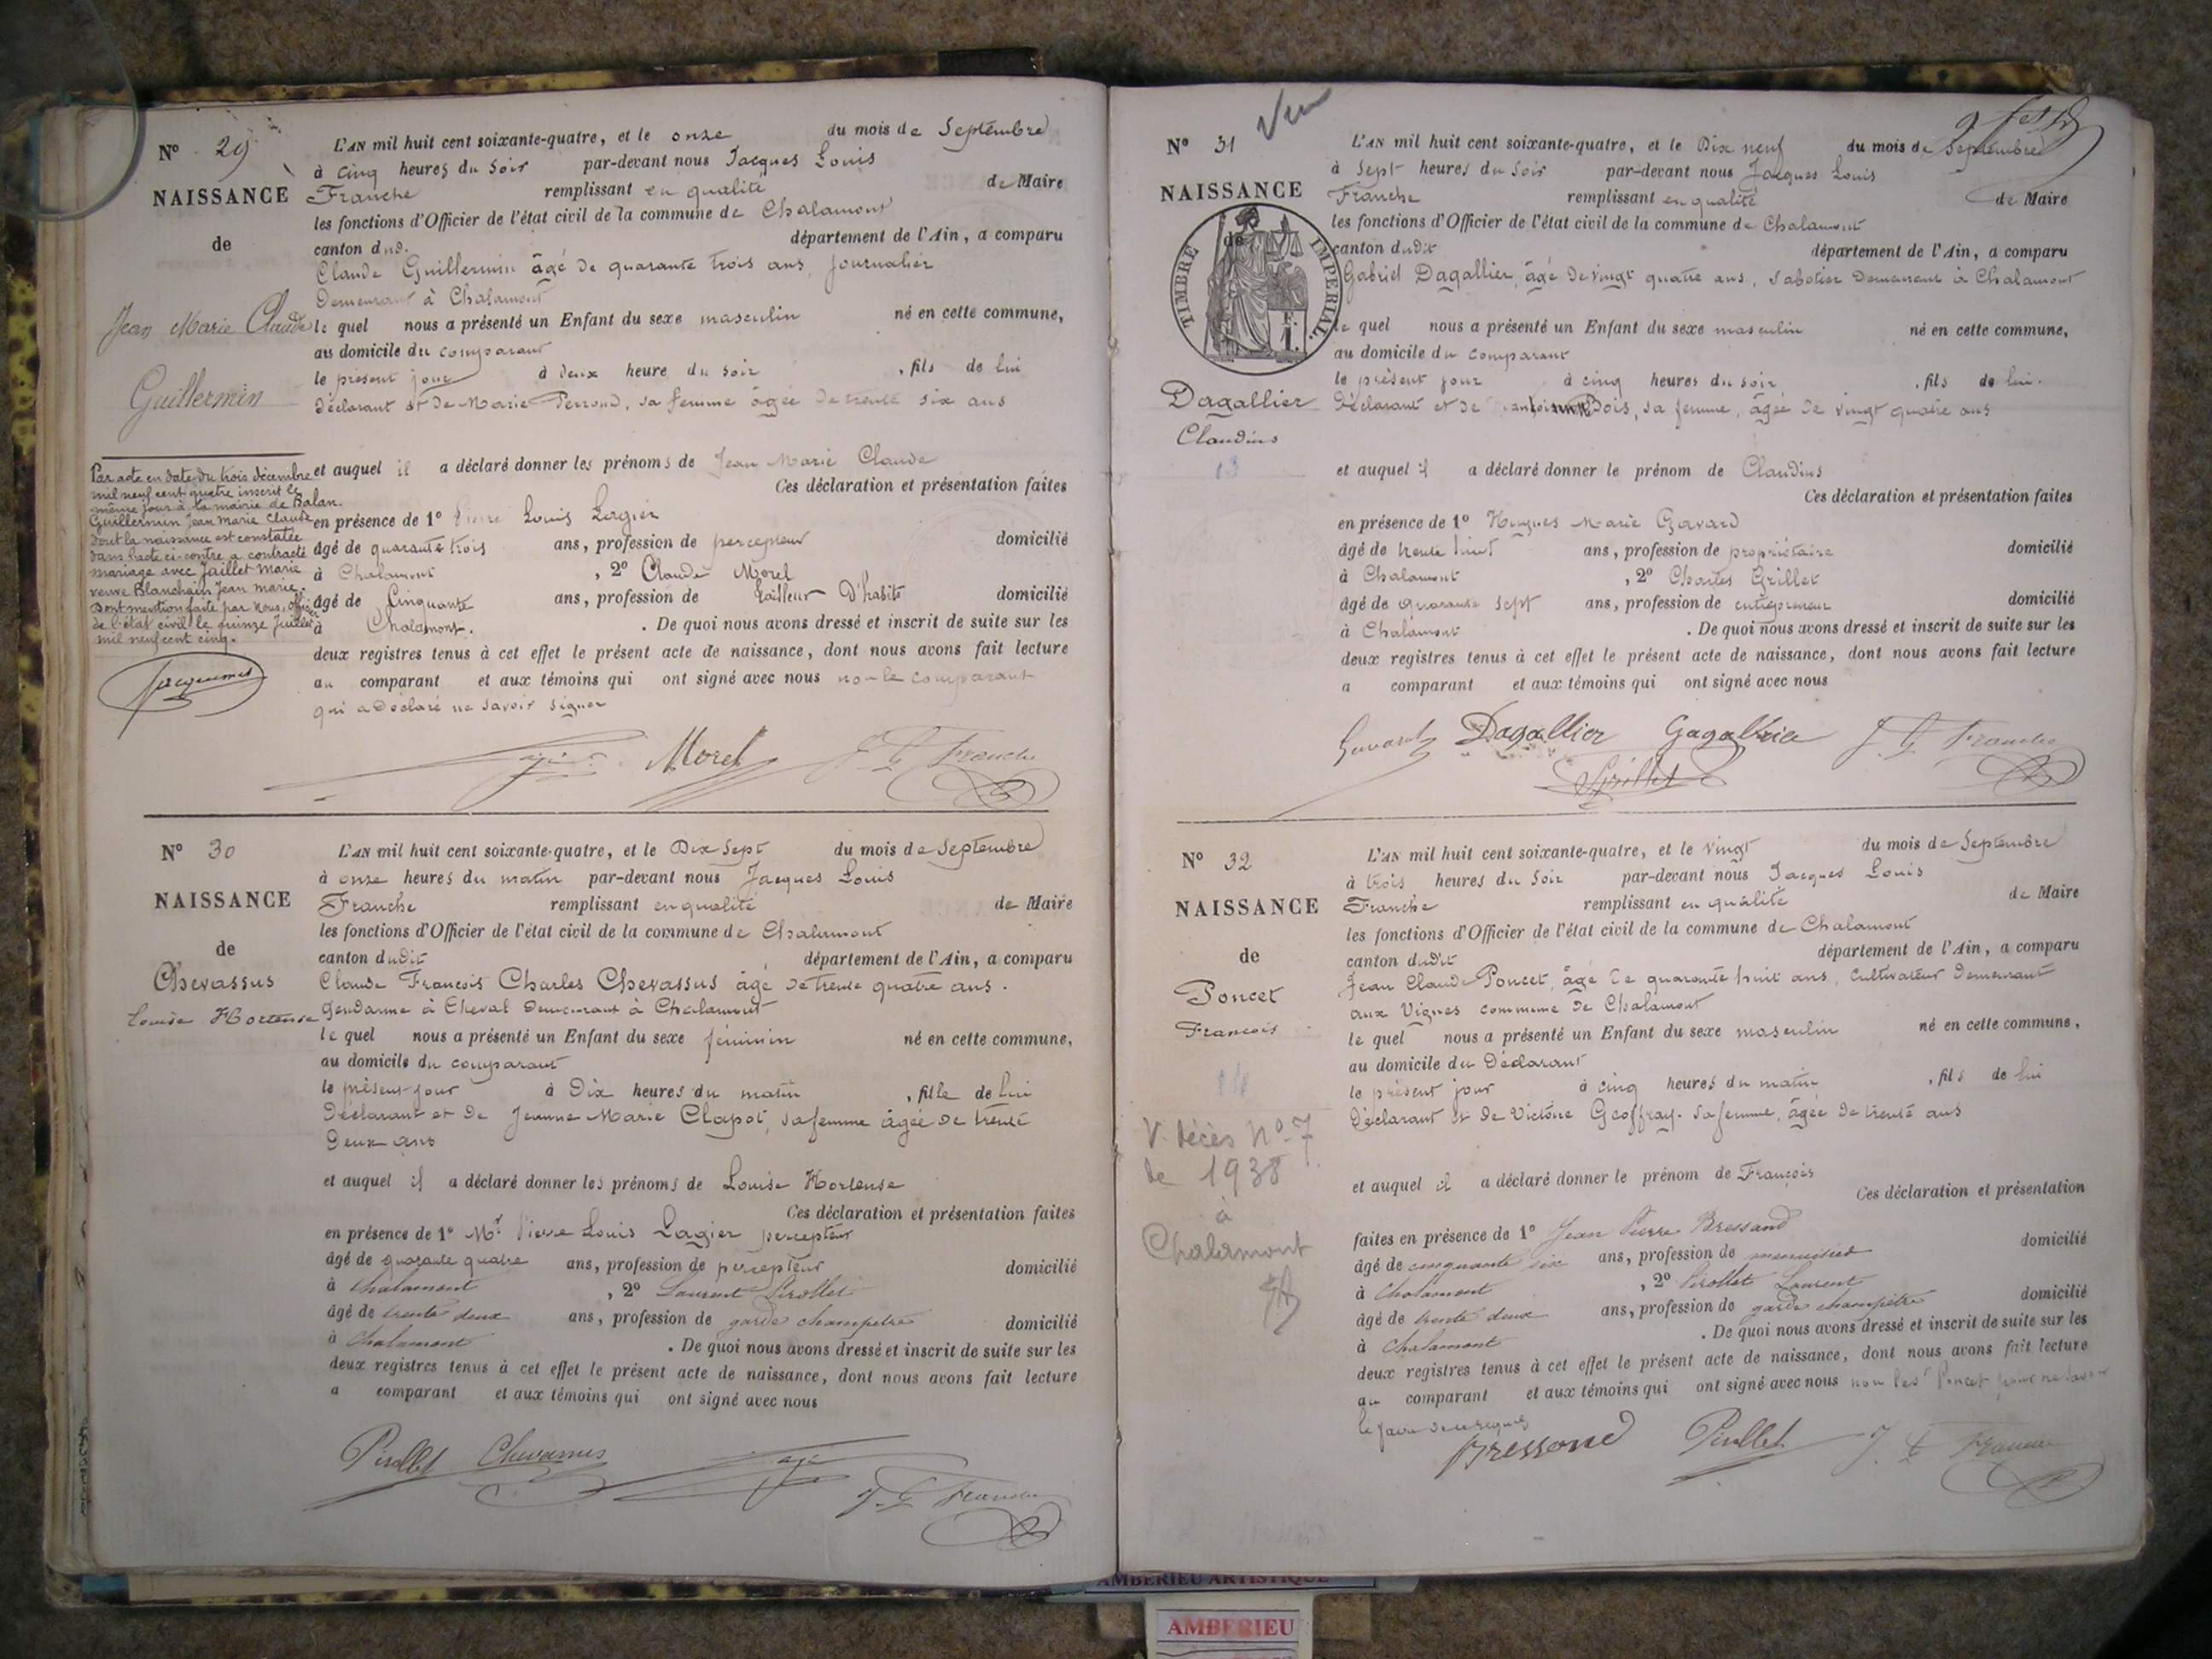 N° 29
NAISSANCE
de
Jean Marie Claude
Guillermin
Par acte en date du trois décembre
mil neuf cent quatre inscrit le
même jour à la mairie de Balan.
Guillermin Jean Marie Claude
dont la naissance est constatée
dans l'acte ci-contre a contracté
mariage avec Jaillet Marie
veuve Blanchain Jean Marie.
Dont mention faite par nous, officier
de l'état civil le quinze Juillet
mil neuf cent cinq.
L'AN mil huit cent soixante-quatre, et le onze du mois de Septembre
à cinq heures du Soir par-devant nous Jacques Louis
Franche remplissant en qualité de Maire
les fonctions d'Officier de l'état civil de la commune de Chalamont
canton dud. département de l'Ain, a comparu
Claude Guillermin âgé de quarante trois ans, Journalier
Demeurant à Chalamont
le quel nous a présenté un Enfant du sexe masculin né en cette commune,
au domicile du comparant
le présent jour à deux heure du soir, fils de lui
Déclarant et de Marie Perroud, sa femme âgée de trente six ans
et auquel il a déclaré donner les prénoms de Jean Marie Claude
Ces déclaration et présentation faites
en présence de 1° Pierre Louis Lagier
âgé de quarante trois ans, profession de percepteur domicilié
à Chalamont, 2° Claude Morel
âgé de Cinquante ans, profession de Tailleur D'habits domicilié
à Chalamont. De quoi nous avons dressé et inscrit de suite sur les
deux registres tenus à cet effet le présent acte de naissance, dont nous avons fait lecture
au comparant et aux témoins qui ont signé avec nous non le comparant
qui a Déclaré ne savoir signer
Morel J L Franche
N° 30
NAISSANCE
de
Chevassus
Louise Hortense
L'AN mil huit cent soixante-quatre, et le Dix Sept du mois de Septembre
à onze heures du matin par-devant nous Jacques Louis
Franche remplissant en qualité de Maire
les fonctions d'Officier de l'état civil de la commune de Chalamont
canton dudit département de l'Ain, a comparu
Claude François Charles Chevassus âgé de trente quatre ans.
Gendarme à Cheval Demeurant à Chalamont
le quel nous a présenté un Enfant du sexe féminin né en cette commune,
au domicile du comparant
le présent jour à Dix heures du matin, fille de lui
Déclarant et de Jeanne Marie Clapot, sa femme âgée de trente
Deux ans
et auquel il a déclaré donner les prénoms de Louise Hortense
Ces déclaration et présentation faites
en présence de 1° Mr Pierre Louis Lagier percepteur
âgé de quarante quatre ans, profession de percepteur domicilié
à Chalamont, 2° Laurent Pirollet
âgé de trente deux ans, profession de garde champêtre domicilié
à Chalamont. De quoi nous avons dressé et inscrit de suite sur les
deux registres tenus à cet effet le présent acte de naissance, dont nous avons fait lecture
a comparant et aux témoins qui ont signé avec nous
Pirollet Chevassus J. L Franche
N° 31
NAISSANCE
de
TIMBRE IMPERIAL
Dagallier
Claudius
13
L'AN mil huit cent soixante-quatre, et le Dix neuf du mois de Septembre
à Sept heures du Soir par-devant nous Jacques Louis
Franche remplissant en qualité de Maire
les fonctions d'Officier de l'état civil de la commune de Chalamont
canton dudit département de l'Ain, a comparu
Gabriel Dagallier, âgé de vingt quatre ans, Sabotier Demeurant à Chalamont
le quel nous a présenté un Enfant du sexe masculin né en cette commune,
au domicile du comparant
le présent jour à cinq heures du soir, fils de lui.
Déclarant et de Bois, sa femme, âgée de vingt quatre ans
et auquel il a déclaré donner le prénom de Claudius
Ces déclaration et présentation faites
en présence de 1° Hugues Marie Gavard
âgé de trente huit ans, profession de propriétaire domicilié
à Chalamont, 2° Charles Grillet
âgé de quarante sept ans, profession de entrepreneur domicilié
à Chalamont. De quoi nous avons dressé et inscrit de suite sur les
deux registres tenus à cet effet le présent acte de naissance, dont nous avons fait lecture
a comparant et aux témoins qui ont signé avec nous
Gavard Dagallier J. L Franche
Grillet
N° 32
NAISSANCE
de
Poncet
François
14
V. décès N° 7
de 1938
à
Chalamont
L'AN mil huit cent soixante-quatre, et le vingt du mois de Septembre
à trois heures du Soir par-devant nous Jacques Louis
Franche remplissant en qualité de Maire
les fonctions d'Officier de l'état civil de la commune de Chalamont
canton dudit département de l'Ain, a comparu
Jean Claude Poncet, âgé de quarante huit ans, Cultivateur Demeurant
aux Vignes commune de Chalamont
le quel nous a présenté un Enfant du sexe masculin né en cette commune,
au domicile du Déclarant
le présent jour à cinq heures du matin, fils de lui
Déclarant et de Victoire Geoffray. sa femme, âgée de trente ans
et auquel il a déclaré donner le prénom de François
Ces déclaration et présentation
faites en présence de 1° Jean Pierre Bressand
âgé de cinquante six ans, profession de menuisier domicilié
à Chalamont, 2° Pirollet Laurent
âgé de trente deux ans, profession de garde champêtre domicilié
à Chalamont. De quoi nous avons dressé et inscrit de suite sur les
deux registres tenus à cet effet le présent acte de naissance, dont nous avons fait lecture
au comparant et aux témoins qui ont signé avec nous non les Poncet pour ne savoir
le faire de ce requis
Bressand Pirollet J. L Franche
AMBERIEU ARTISTIQUE
AMBERIEU